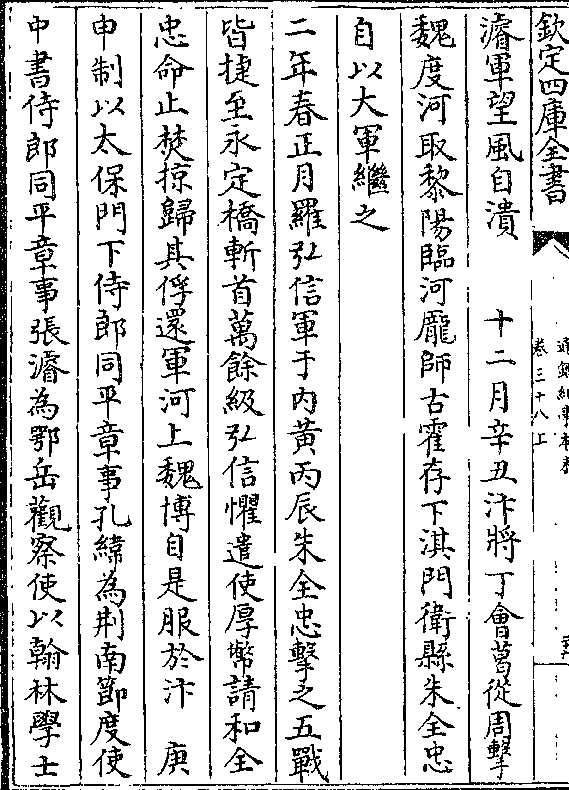 欽定四庫全書
通鑑紀事本末
卷三十八上
濬軍望風自潰　十二月辛丑汴將丁會葛從周擊
魏度河取黎陽臨河龎師古霍存下淇門衛縣朱全忠
自以大軍繼之
二年春正月羅弘信軍于内黄丙辰朱全忠擊之五戰
皆捷至永定橋斬首萬餘級弘信懼遣使厚幣請和全
忠命止焚掠歸其俘還軍河上魏博自是服於汴　庚
申制以太保門下侍郎同平章事孔緯為荆南節度使
中書侍郎同平章事張濬為鄂岳觀察使以翰林學士